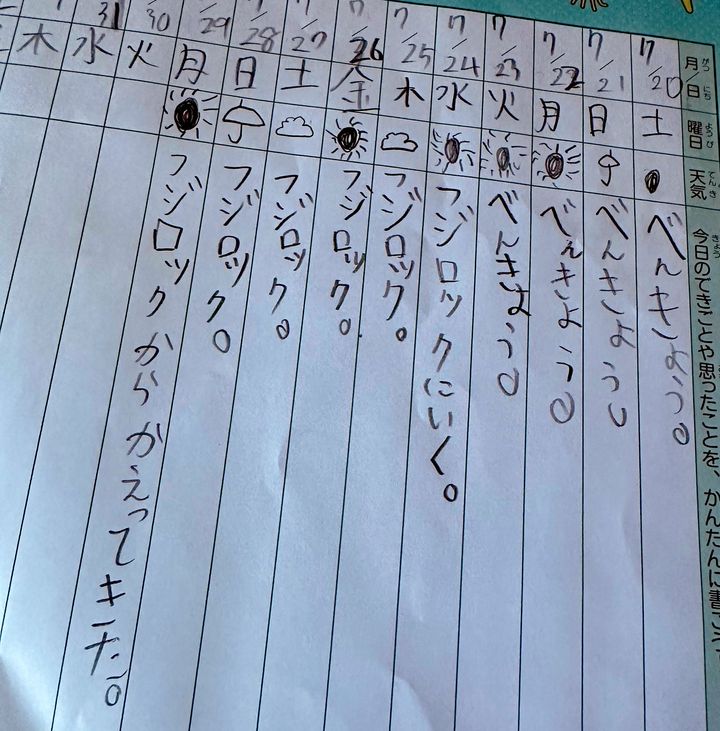 月/日 がつ にち
曜日 ようび
天気 てんき
今日のできごとや思ったことを、かんたんに書こう きょう
7/20 土 べんきよう。
7/21 日 べんきよう。
7/22 月 べんきよう。
7/23 火 べんきよう。
7/24 水 フジロックにいく。
7/25 木 フジロック。
7/26 金 フジロック。
7/27 土 フジロック。
7/28 日 フジロック。
7/29 月 フジロックからかえってきた。
30 火
31 水
木